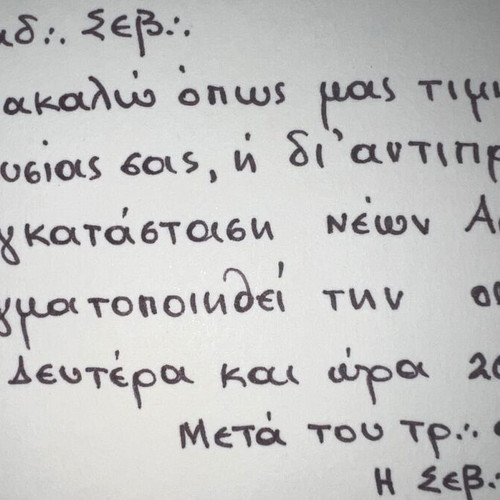 αδ∴ Σεβ∴
ακαλώ όπως μας τιμι
υσίας σας, ή δι'αντιπρ
γκατάσταση νέων Α
γματοποιηθεί την
Δευτέρα και ώρα 20
Μετά του τρ∴
Η Σεβ∴